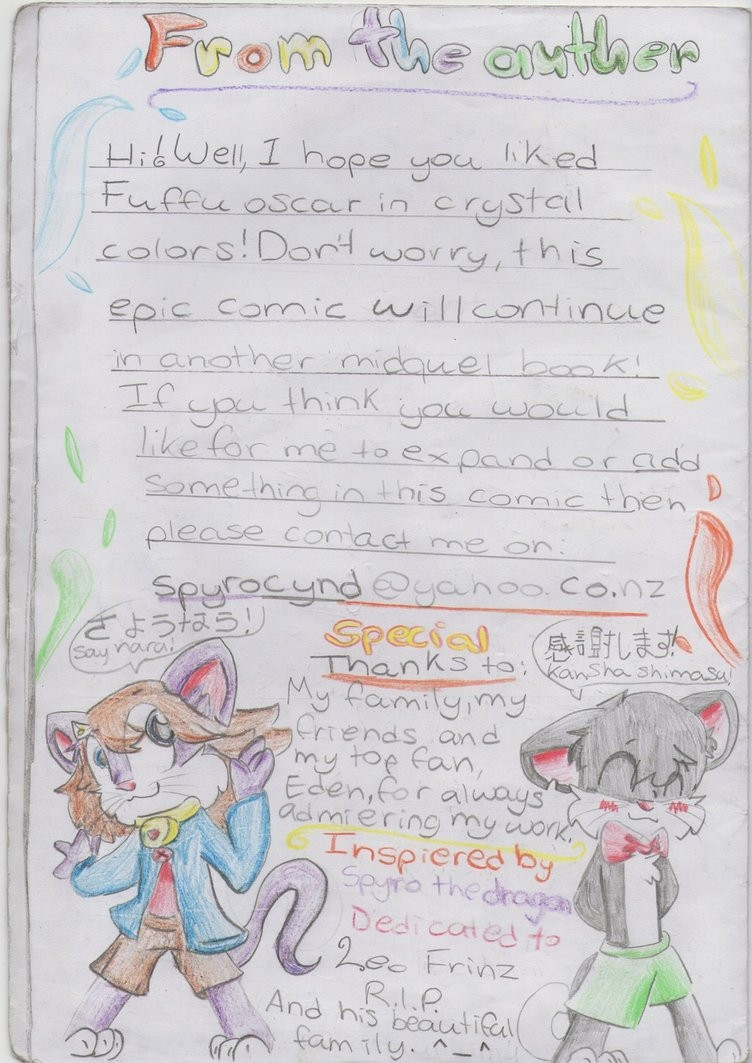 From the auther
Hi! Well, I hope you liked
Fuffu oscar in crystal
colors! Don't worry, this
epic comic will continue
in another midquel book!
If you think you would
like for me to expand or add
something in this comic then
please contact me on:
spyrocynd@yahoo.co.nz
さようなら!
Saynara!
Special
Thanks to:
My family, my
friends and
my top fan,
Eden, for always
admiering my work.
感謝します!
Kansha shimasu!
Inspiered by
Spyro the dragon
Dedicated to
Leo Frinz
R.I.P.
And his beautiful
family. ^_^